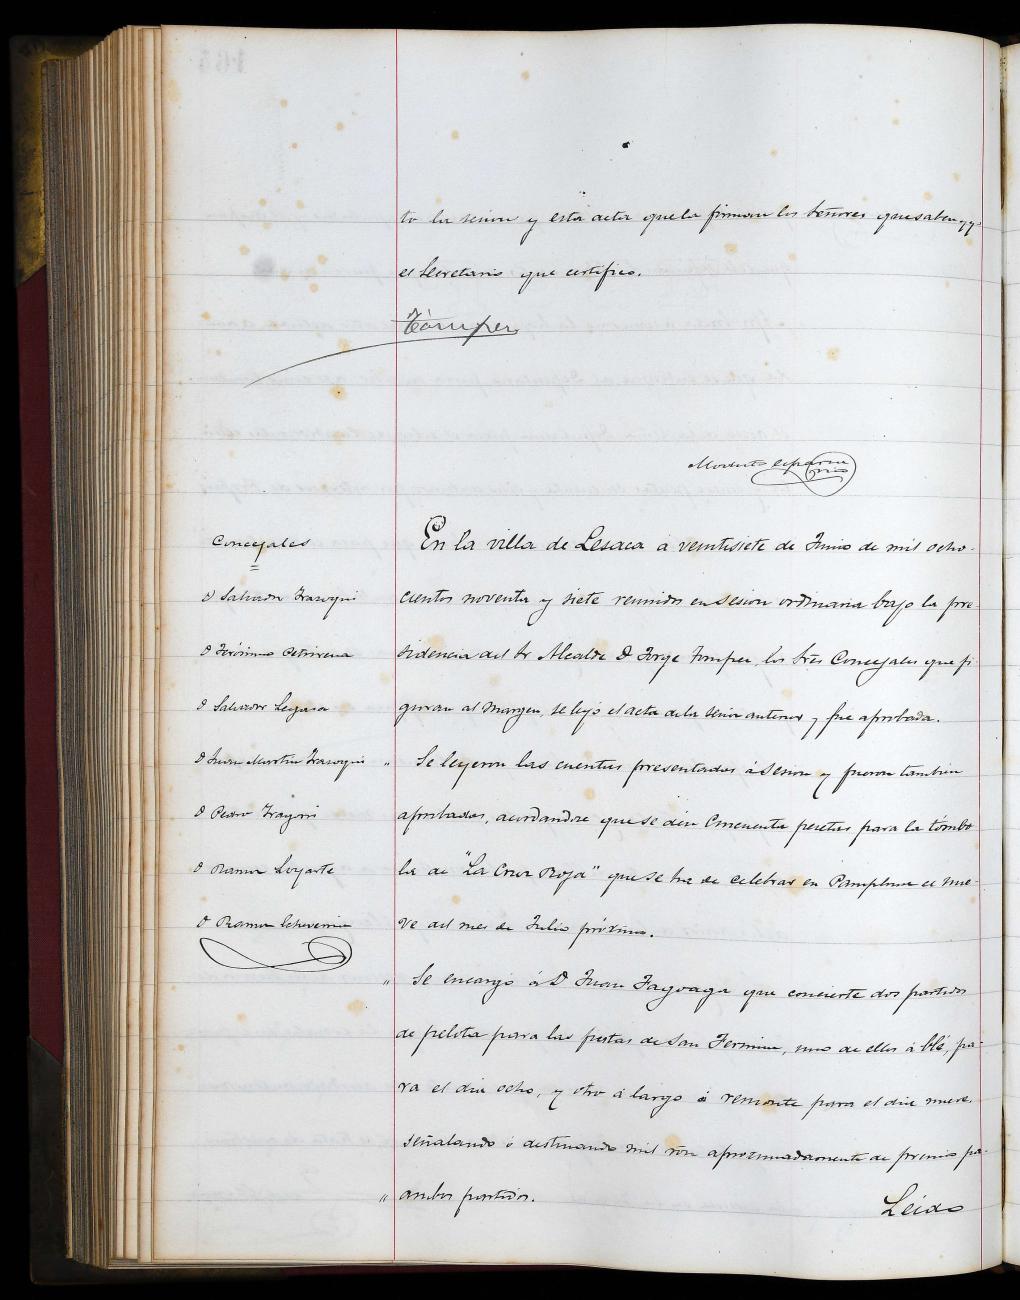 to la sesion y esta acta que la firman los Señores que saben y yo
el Secretario que certifico.
Tómper
Modesto Esparza
Srio
Concejales
D Salvador Irazoqui
D Jerónimo Petrirena
D Salvador Legasa
D Juan Martin Irazoqui
D Pedro
D Ramon Loyarte
D Ramon Echeverria
En la villa de Lesaca á veintisiete de Junio de mil ocho-
cientos noventa y siete reunidos en sesion ordinaria bajo la pre-
sidencia del Sr Alcalde D Jorge Tomper, los Sres Concejales que fi
guran al margen, se leyó el acta de la sesion anterior y fue aprobada.
" Se leyeron las cuentas presentadas á Sesion y fueron tambien
aprobadas, acordandose que se den Cincuenta pesetas para la tómbo
la de "La Cruz Roja" que se ha de celebrar en Pamplona el nue-
ve del mes de Julio próximo.
" Se encargó á D Juan Fagoaga que concierte dos partidos
de pelota para las fiestas de San Fermin, uno de ellos á blé, pa-
ra el dia ocho, y otro á largo ó remonte para el dia nueve
señalando ó destinando mil rvn aproximadamente de premio pa-
" ambos partidos.
Leida